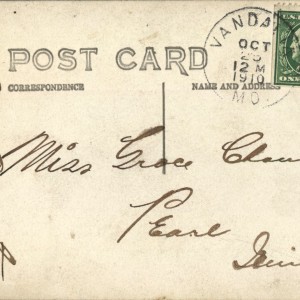 POST CARD
CORRESPONDENCE
NAME AND ADDRESS
VANDA
OCT
12 M
1910
MO.
Miss Grace
Pearl